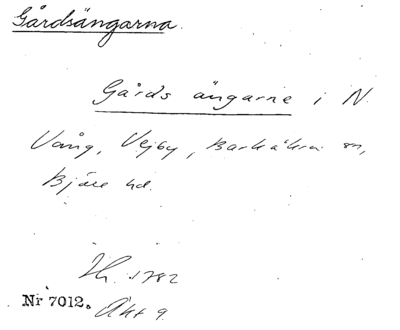 Gårdsängarna.
Gårds ängarne i N.
Vång, Vejby, Barkåkra sn,
Bjäre hd.
1782
Nr 7012. Akt 9